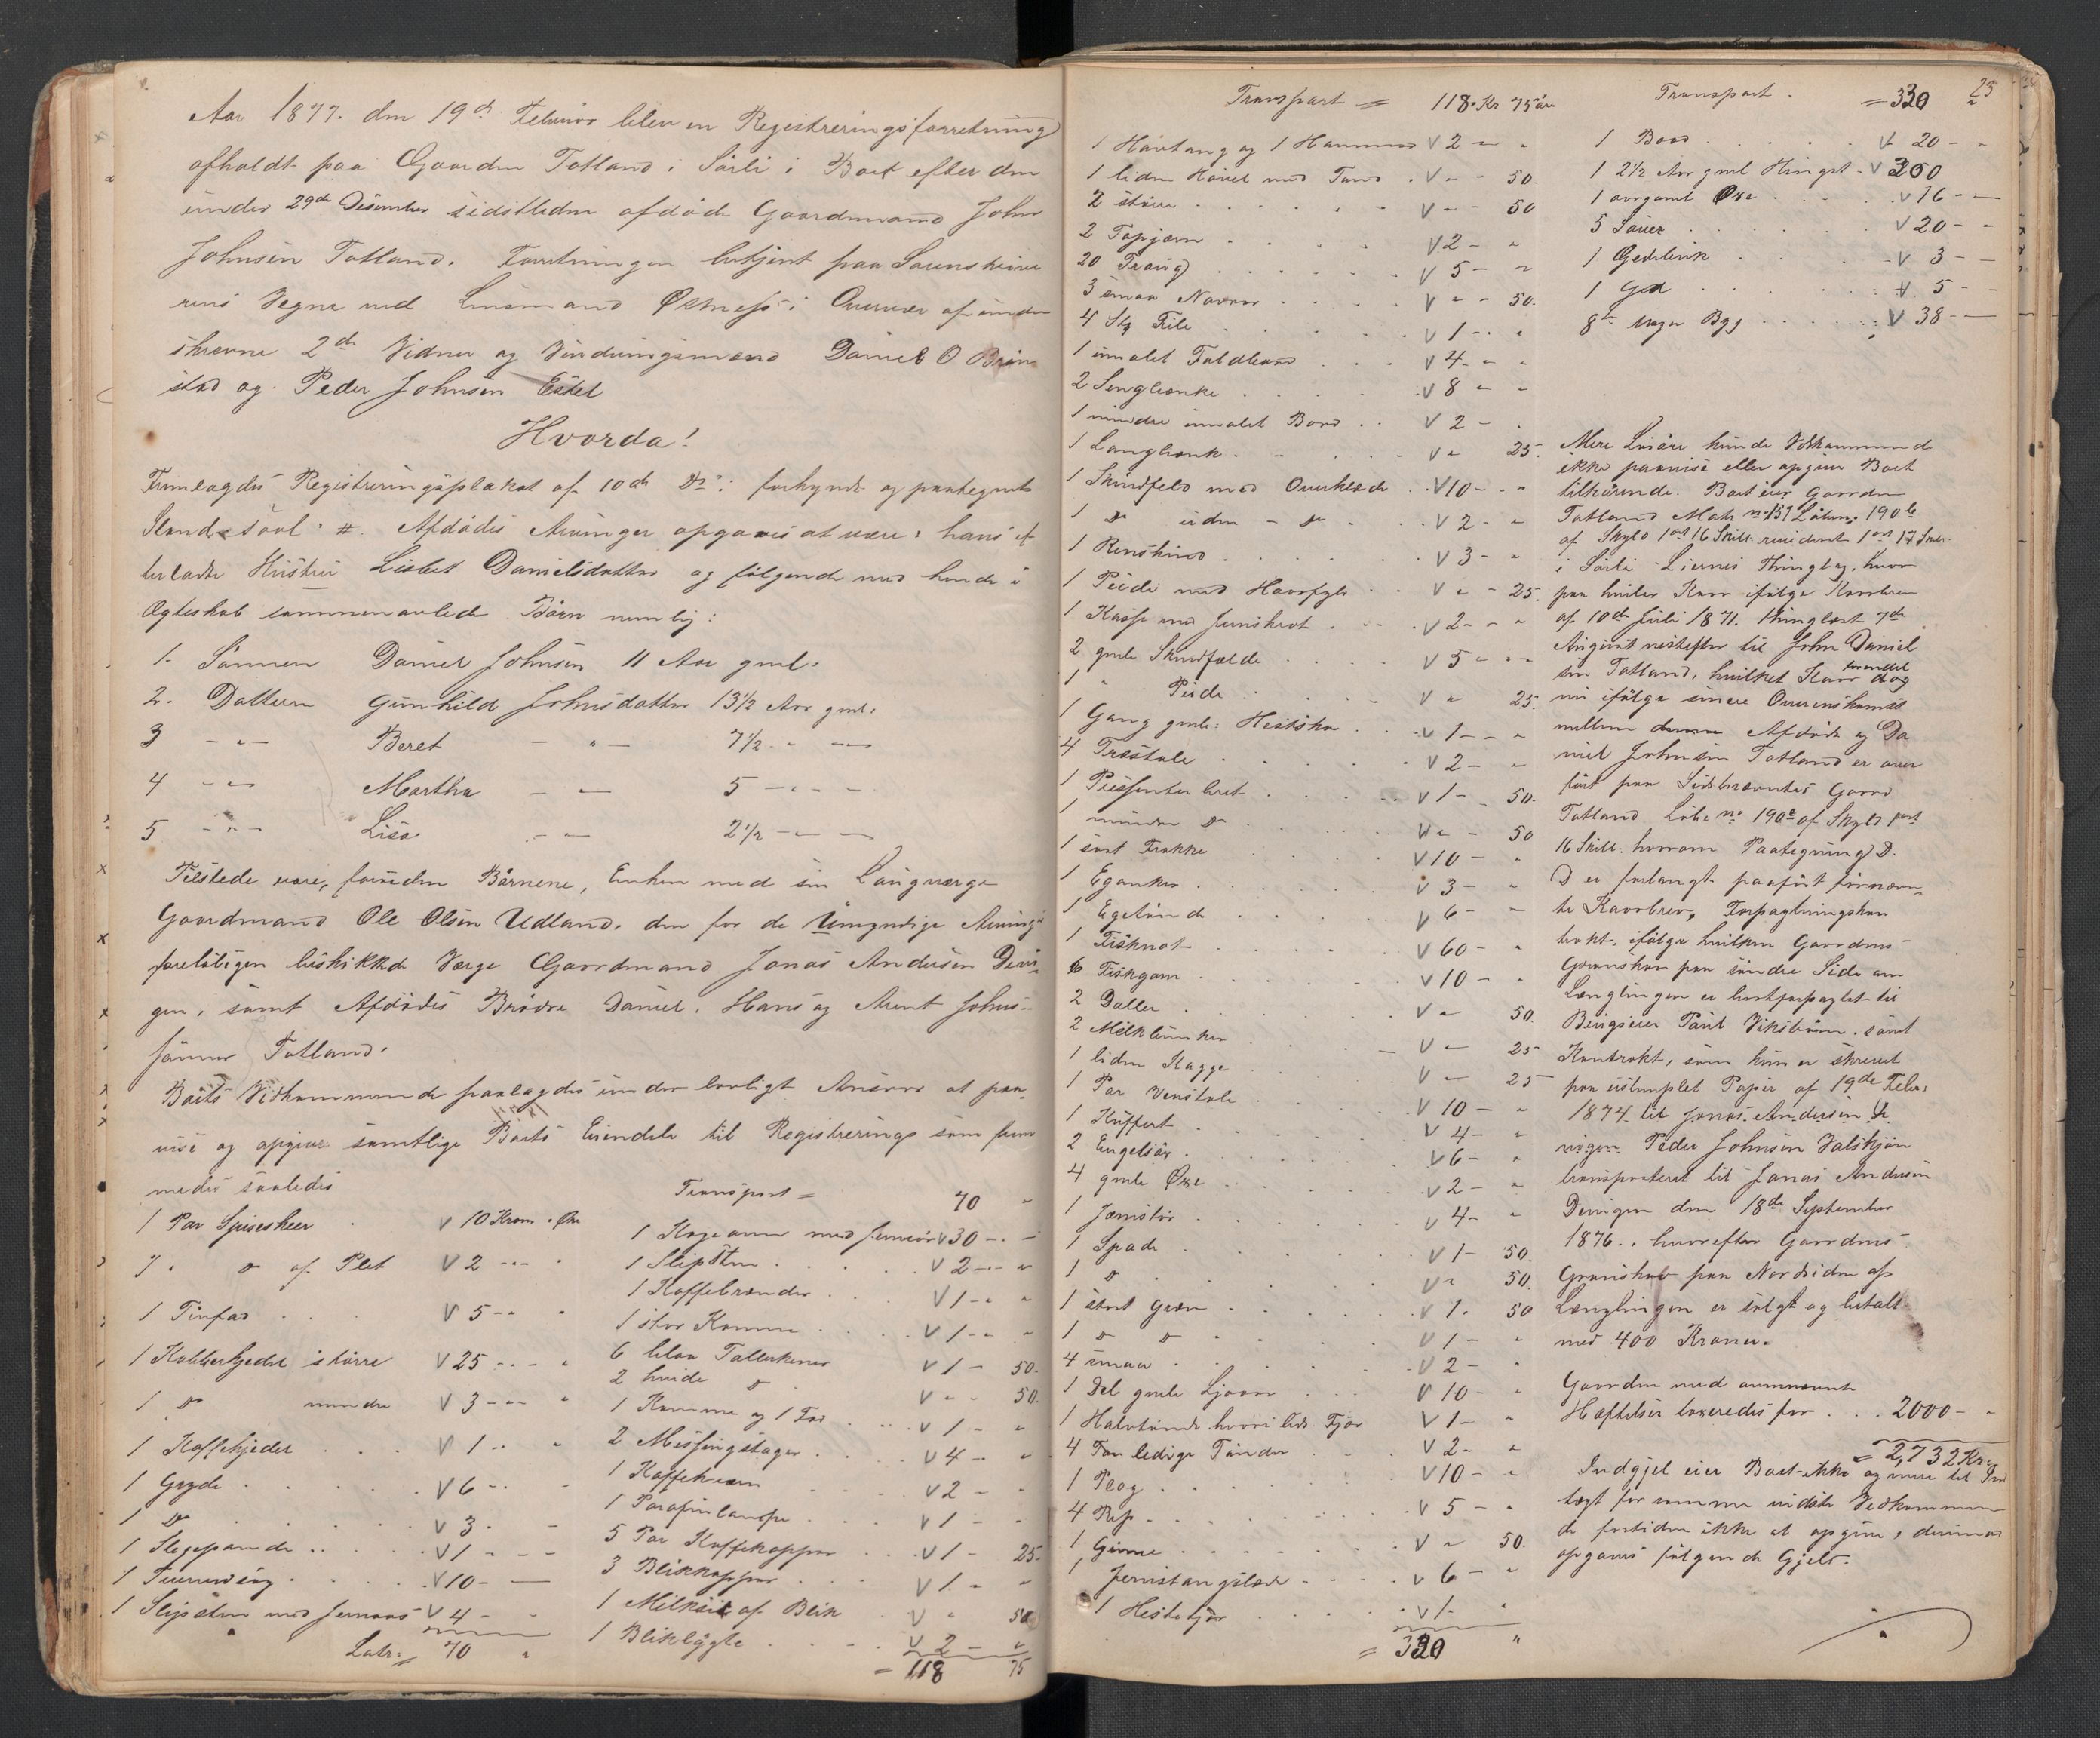 Aar 1877. den 19de Februar blev en Registreringsforretning
afholdt paa Gaarden Totland i Sørli i Boet efter den
under 29de Desember sidstleden afdøde Gaardmand John
Johnsen Totland. Forretningen betjent paa Sorenskrive
rens Vegne ved Lensmand Østnes i Overvær af under
skrevne 2de Vidner og Vurderingsmænd Daniel O
stad og Peder Johnsen Estel
Hvorda!
Fremlagdes Registreringsplakat af 10de Ds: forkyndt og paategnet
#. Afdødes Arvinger opgaves at være: hans ef
terladte Hustru Lisbet Danielsdatter og følgende med hende i
Ægteskab sammenavlede Børn nemlig:
1. Sønnen Daniel Johnsen 11 Aar gml.
2. Datteren Gunhild Johnsdatter 13 1/2 Aar gml.
3 - " - Beret - " - 7 1/2 - " -
4 - " - Martha - " - 5 - " -
5 - " - Lisa - " - 2 1/2 - " -
Tilstede vare, foruden Børnene, Enken med sin Laugværge
Gaardmand Ole Olsen Udland, den for de Umyndige Arvinge
foreløbigen beskikkede Værge Gaardmand Jonas Andersen Devi
gen, samt Afdødes Brødre Daniel, Hans og Arnt Johns-
sønner Totland.
Boets Vedkommende paalagdes under lovligt Ansvar at paa
vise og opgive samtlige Boets Eiendele til Registrering som frem
medes saaledes
1 Par Spiseskeer V 10 Kron " Øre
7 " D af Plet V 2 - "
1 Tinfad V 5 - "
1 Kobberkjedel større V 25 - "
1 D mindre V 3 - "
1 Kaffekjedel V 1 - "
1 Gryde V 6 - "
1 D V 3 - "
1 Stegepande V 1 - "
1 V 10 -
1 Slipsten med Jernaas V 4 - "
Lats. = 70 "
Transport = 70 "
1 Kogeovn med V 30 - "
1 Slipsten V 2 - "
1 Kaffebrænder V 1 - "
1 stor Kanne V 1 - "
6 blaa Tallerkener V 1 - 50.
2 hvide D V " - 50.
1 Kanne og 1 Fad V 1 - "
2 Messingstager V 4 - "
1 Kaffekværn V 2 - "
1 Parafinlampe V 1 - "
5 Par Kaffekopper V 1 - 25.
3 Blikkopper V 1 - "
1 Melkesil af Blik V " 50
1 Bliklygte V 2 - "
= 118 75
Transport = 118. Kr 75 øre
1 Hovtang og 1 Hammer V 2 - "
1 liden Høvel med Tand V " - 50.
2 større V " - 50
2 Tapjern V 2 - "
20 Traug V 5 - "
3 smaa Navrer V " - 50.
4 Stk File V 1 - "
1 umalet Foldbord V 4 - "
2 Sengbænke V 8 - "
1 mindre umalet Bord V 2 -
1 Langbænk V " 25.
1 Skindfeld med Overklæde V 10 - "
1 D uden - D V 2 - "
1 Renskind V 3 - "
1 Pude med Haarfyld V " - 25.
1 Kasse med Jernskrot V 2 - "
2 gmle Skindfælde V 5 - "
1 " Pude V " 25.
1 Gang gmle: Hestsko V 1 - "
4 Træstole V 2 - "
1 V 1 - 50.
1 mindre D V " - 50
1 sort Frakke V 10 - "
1 Eganker V 3 - "
1 Egetønde V 6 - "
1 Fisknot V 60 - "
6 Fiskgarn V 10 - "
2 Daller V " 50.
2 Melkbunker V " 25
1 liden Kagge V " 25
1 Par Vevstole V 10 - "
1 Kuffert V 4 - "
2 V 6 - "
4 gmle Øxe V 2 - "
1 Jernstør V 4 - "
1 Spade V 1 - 50.
1 D V " 50.
1 stort V 1. 50
1 D D V 1 - "
4 smaa V 2 - "
1 Del gmle Ljaaer V 10 - "
1 Halvtønde hvori lidt Tjær V 1 - "
4 Fire ledige Tønder V 2 - "
1 Plog V 10 - "
4 Rep V 5 - "
1 Grime V " 50.
1 V 6 - "
1 V 1 - "
= 330 "
Transport. = 330 "
25
1 Baad V 20 - "
1 2 1/2 Aar gml Hingst V 200
1 aargaml Øxe V 16 -
5 Sauer V 20 - "
1 Gedebuk V 3 -
1 Ged V 5 -
8 Byg V 38 -
Mere Løsøre kunde Vedkommende
ikke paavise eller opgive Boet
tilhørende. Boet eier Gaarden
Totland Matr no 157 Løbenr 190b
af Skyld 1ort 16 Skill. revideret 1ort 17 Skill.
i Sørli Liernes Thinglag, hvor
paa hviler Kaar ifølge Kaarbrev
af 10de Juli 1871. thinglæst 7de
August næstefter til John Daniel
sen Totland, hvilket Kaar dog
nu ifølge senere Overenskomst
mellem Afdøde og Da
niel Johnsen Totland er over
ført paa Sidstnævntes Gaard
Totland Løbe no 190a af Skyld 1ort
16 Skill. hvorom Paategning D.
D er forlangt paaført førnævn
te Kaarbrev, Forpagtningskon
trakt, ifølge hvilken Gaardens
Grænskov paa søndre Side om
Længlingen er bortforpagtet til
Brugseier Paul Vikstrøm, samt
Kontrakt, som kun er skrevet
paa ustemplet Papir af 19de Febr.
1874 til Jonas Andersen
Peder Johnsen Valskjøn
transporteret til Jonas Andersen
Devigen den 18de September
1876., hvorefter Gaardens
Granskov paa Nordsiden af
Længlingen er solgt og betalt
med 400 Kroner.
Gaarden med omnævnte
Hæftelser taxeredes for . . . 2000 - "
= 2,732 Kr
Indgjel eier Boet ikke og mere til Ind
tægt for samme vidste Vedkommen
de fortiden ikke at opgive, derimod
opgaves følgende Gjeld.